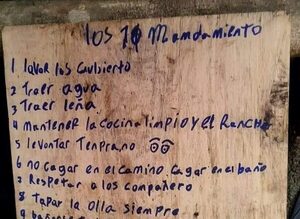 los 10 Mamdamiento
1 lavar los Cubierto
2 Traer agua
3 Traer leña
4 mantener la cocina limpio y el Rancho
5 levantar Temprano
6 no cagar en el camino. Cagar en el baño
7 Respetar a los compañero
8 Tapar la olla siempre
9